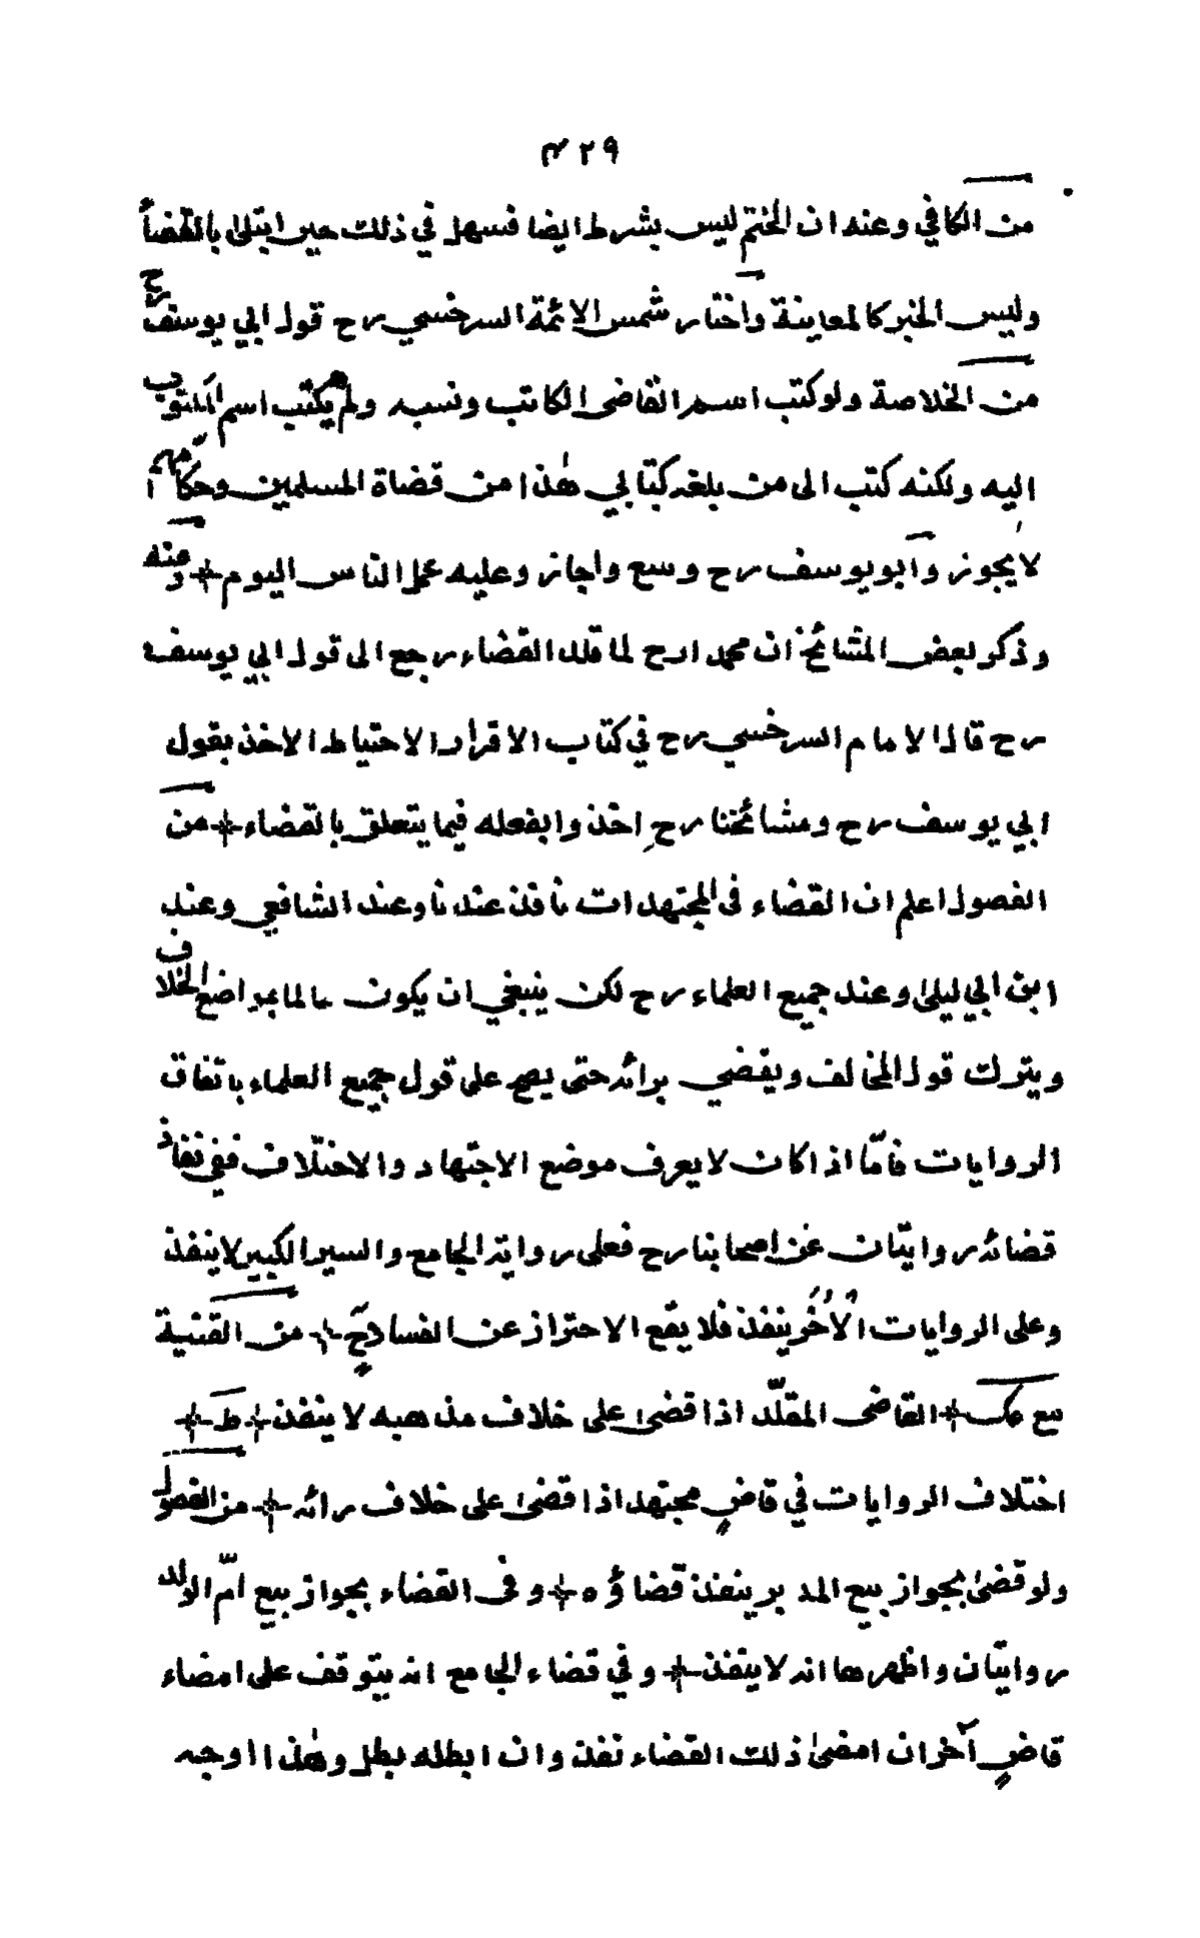 ٤٢٩
من الكافي وعنه ان الختم ليس بشرط ايضا فسهل في ذلك حين ابتلى بالقضاء
وليس الخبر كالمعاينة واختار شمس الائمة السرخسي رح قول ابي يوسف رح
من الخلاصة ولو كتب اسم القاضى الكاتب ونسبه ولم يكتب اسم المكتوب
اليه ولكنه كتب الى من بلغه كتابي هٰذا من قضاة المسلمين وحكّامهم
لا يجوز وابو يوسف رح وسع واجاز وعليه عمل الناس اليوم + ومنه
وذكر بعض المشائخ ان محمدا رح لما قلد القضاء رجع الى قول ابي يوسف
رح قال الامام السرخسي رح في كتاب الاقرار الاحتياط الاخذ بقول
ابي يوسف رح ومشائخنا رح اخذوا بفعله فيما يتعلق بالقضاء + من
الفصول اعلم ان القضاء فى المجتهدات نافذ عندنا وعند الشافعي وعند
ابن ابي ليلىٰ وعند جميع العلماء رح لكن ينبغي ان يكون عالما بمواضع الخلاف
ويترك قول المخالف ويقضي برائه حتى يصح على قول جميع العلماء باتفاق
الروايات فامّا اذا كان لا يعرف موضع الاجتهاد والاختلاف ففي نفاذ
قضائه روايتان عن اصحابنا رح فعلى رواية الجامع والسير الكبير لا ينفذ
وعلى الروايات الاُخَر ينفذ فلا يقع الاحتراز عن الفساد + من القنية
بع مك + القاضى المقلّد اذا قضىٰ على خلاف مذهبه لا ينفذ + ط +
اختلاف الروايات في قاضٍ مجتهد اذا قضىٰ على خلاف رائه + من الفصول
ولو قضىٰ بجواز بيع المدبر ينفذ قضاؤه + وفى القضاء بجواز بيع امّ الولد
روايتان واظهرهما انه لا ينفذ + وفي قضاء الجامع انه يتوقف على امضاء
قاضٍ آخر ان امضىٰ ذلك القضاء نفذ وان ابطله بطل وهٰذا اوجه